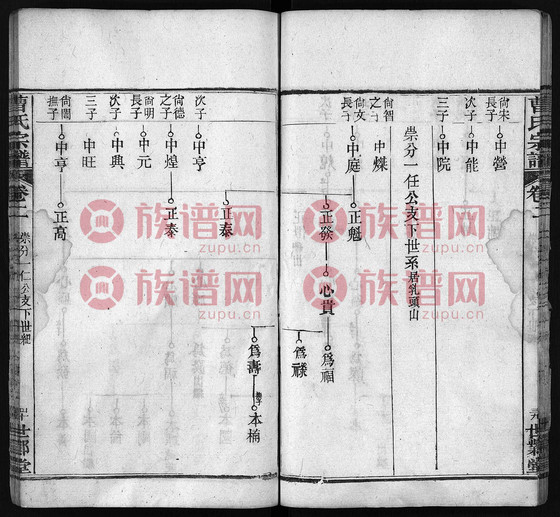 曹氏宗譜
卷二
世鄴堂
尙宋長子
中營
次子
中能
三子
中院
崇分一任公支下世系居乳頭山
尙智之子
中煤
尙文長子
中庭
正魁
正發
心賞
爲福
爲祿
爲壽
本楠
正泰
次子
中亨
尙德之子
中煌
正泰
尙明長子
中元
次子
中典
三子
中旺
尙閣撫子
中亨
正高
曹氏宗譜
卷二
崇分一仁公支下世紀
世鄴堂
族谱网
zupu.cn
族谱网
zupu.cn
族谱网
zupu.cn
族谱网
zupu.cn